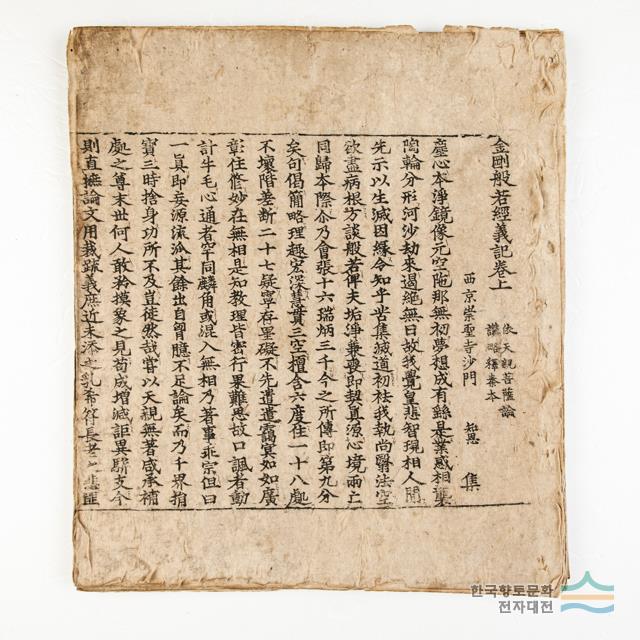 金剛般若經義記卷上
依天親菩薩論
講略釋秦本
西京崇聖寺沙門 知恩 集
塵心本淨鏡像元空陁那無初夢想成有緜是業感相襲
陶輪分形河沙劫來過絕無日故我覺皇悲智現相人間
先示以生滅因緣令知乎苦集滅道初祛我執尚翳法空
欲盡病根方談般若俾夫垢淨兼喪即契眞源心境兩亡
同歸本際尒乃會張十六瑞炳三千今之所傳即第九分
矣句偈簡略理趣宏深慧貫三空檀含六度住一十八處
不壞階差斷二十七疑寧存罣礙不先遣遣靄寞如如廣
彰住修妙在無相是知教理皆密行果難思故口諷者動
計牛毛心通者罕同麟角或混入無相乃著事乖宗但曰
一眞即妄源流派其餘出自胷臆不足論矣而乃千界捐
寶三時捨身功所不及豈徒然哉嘗以天親無著咸承補
處之尊末世何人敢矜摸𤔡之見苟成增減詎異駢支今
則直撫論文用裁䟽義庶近未添之乳希符長者
한국향토문화
전자대전